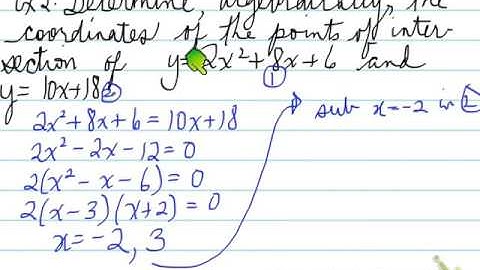 Ex 2: Determine, algebraically, the
coordinates of the points of inter-
section of y=2x²+8x+6 and
①
y=10x+18②
2x²+8x+6=10x+18
sub x=-2 in ②
2x²-2x-12=0
2(x²-x-6)=0
2(x-3)(x+2)=0
x=-2, 3